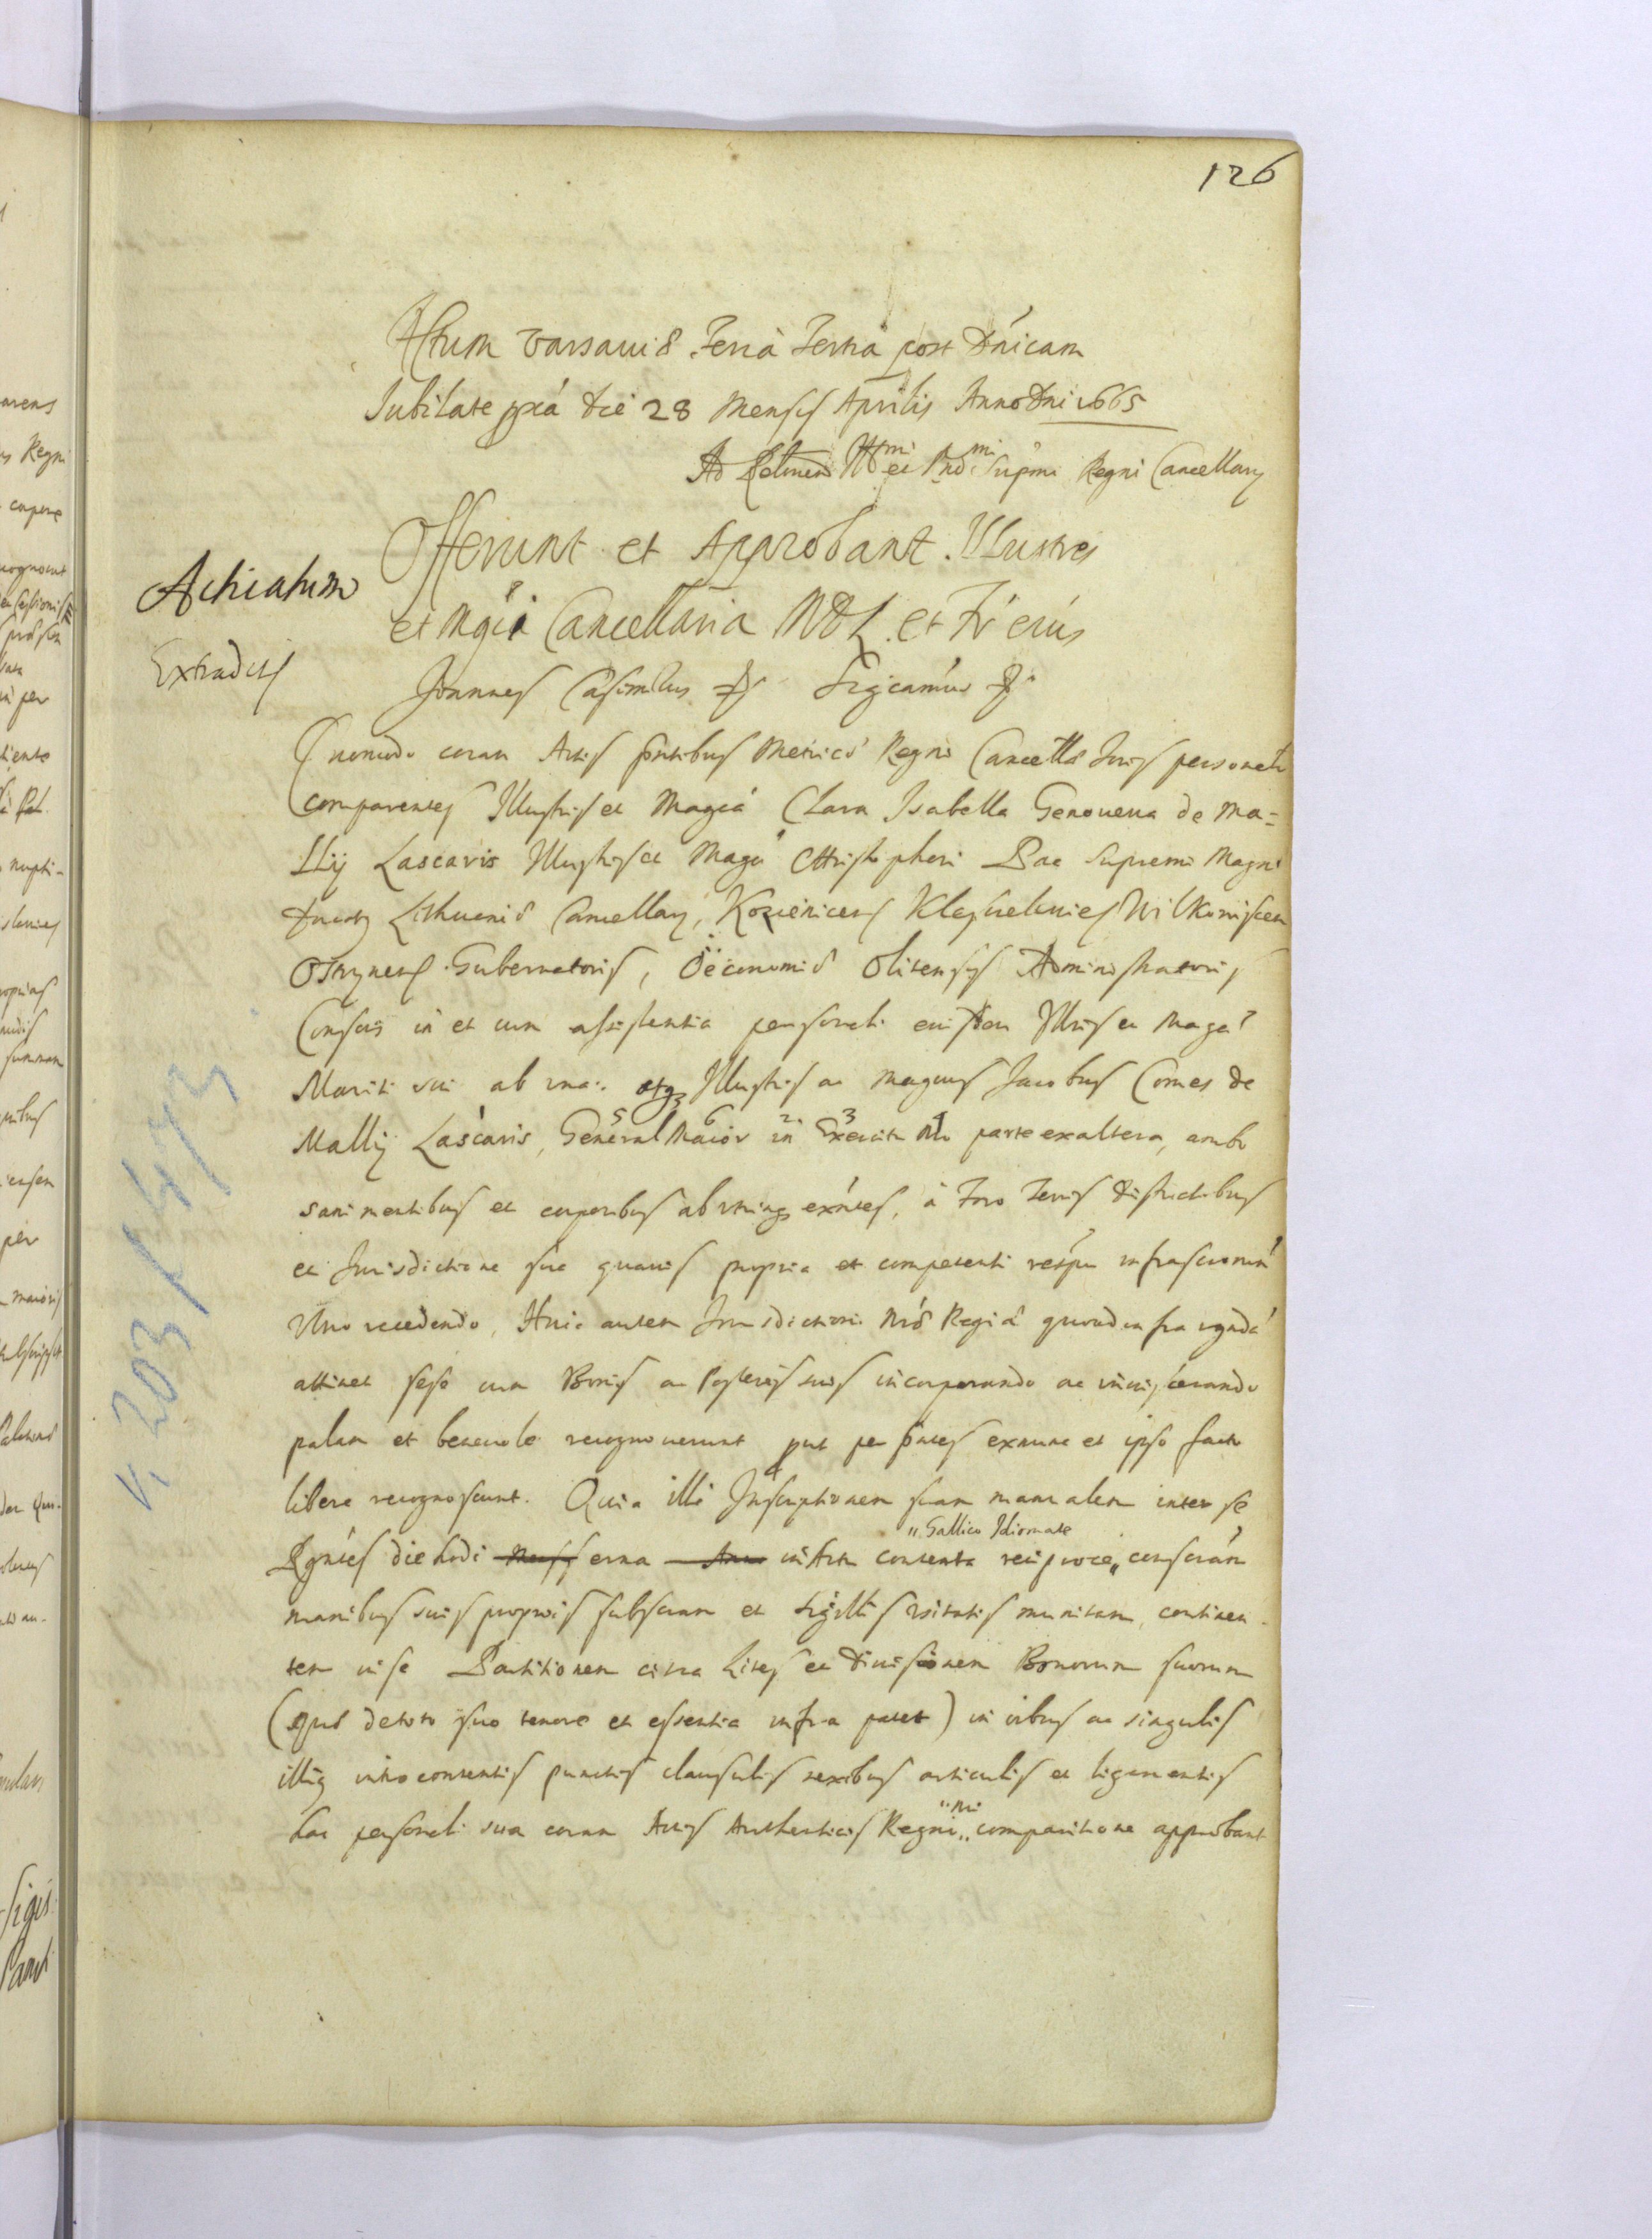 126
Actum Varsaviæ Feria Tertia post Dnicam
Jubilate pxa die 28 Mensis Aprilis Anno Dni 1665
Ad Illmi et Rndmi Supmi Regni Cancellarij
Offerunt et Approbant Illustres
et Mgca Cancellaria MDL et Fr eius
Acticatum
Extradit
Joannes Casimirus Significamus
Quomodo coram Actis pntibus Metricæ Regni Cancellæ Juris personalr
comparentes Illustris et Magca Clara Isabella Genoueua de Ma=
llij Lascaris Illustris et Magci Christophori Pac Supremi Magni
Ducatus Lithuaniæ Cancellarij, Kozienicen Wilkowiscen
Gubernatoris, Oëconomiæ Olitensis Administratoris
Consors in et cum assistentia personali eiusdem Illris et Magci
Mariti sui ab una atq Illustris ac Magcus Jacobus Comes de
Mallij Lascaris, General Maior in Exercitu parte ex altera, ambo
sani mentibus et corporibus ab utrinq exntes, à Foro Terris Districtibus
et Jurisdictione sua quauis propria et competenti respu infrascriptorum
recedendo, Huic autem Jurisdictioni Nræ Regiæ quoad infra
attinet sese cum Bonis ac Posteris suis incorporando ac inuiscerando
palam et beneuole recognouerunt put per pntes exnunc et ipso facto
libere recognoscunt. Quia illi Inscriptionem suam manualem inter se
Rgntes die hodierna in Actu contenta reciproce „ conscriptam
„ Gallico Idiomate
manibus suis proprijs subscriptam et sigillis usitatis munitam, continen
tem in se Partitionem circa Lites et Diuisionem Bonorum suorum
(quæ de toto suo tenore et essentia infra patet) in oibus ac singulis
illius introcontentis punctis clausulis nexibus articulis et ligamentis
hac personali sua coram Actis Authenticis Regni „ comparitione approbant
V. 203 f. 473